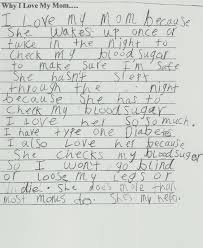 Why I Love My Mom....
I Love my Mom because
She wakes up once or
twice in the night to
check my blood sugar
to make sure I'm safe
She hasn't slept
through the night
because She has to
check my blood sugar
I love her so so much.
I have type one Diabetes
I also love her because
She checks my blood sugar
So I won't go blind
or loose my legs or
die. She does more than
most moms do. She's my hero.